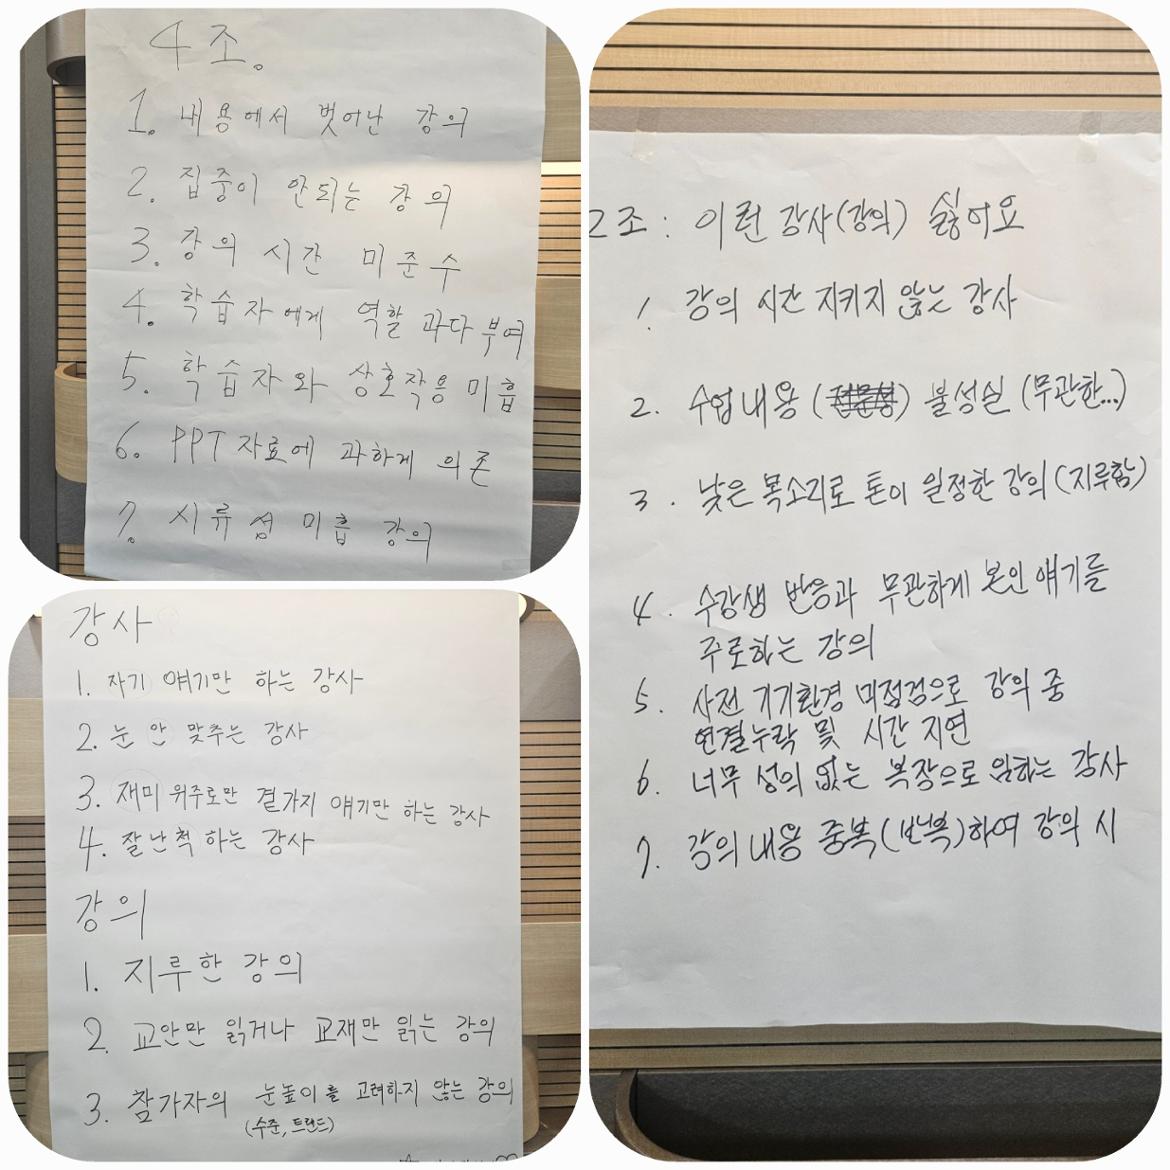 4조.
1. 내용에서 벗어난 강의
2. 집중이 안되는 강의
3. 강의 시간 미준수
4. 학습자에게 역할 과다 부여
5. 학습자와 상호작용 미흡
6. PPT 자료에 과하게 의존
7. 시류성 미흡 강의
강사
1. 자기 얘기만 하는 강사
2. 눈 안 맞추는 강사
3. 재미 위주로만 곁가지 얘기만 하는 강사
4. 잘난척 하는 강사
강의
1. 지루한 강의
2. 교안만 읽거나 교재만 읽는 강의
3. 참가자의 눈높이를 고려하지 않는 강의
(수준, 트렌드)
2조 : 이런 강사(강의) 싫어요
1. 강의 시간 지키지 않는 강사
2. 수업내용 ( ) 불성실 (무관한...)
3. 낮은 목소리로 톤이 일정한 강의 (지루함)
4. 수강생 반응과 무관하게 본인 얘기를
주로하는 강의
5. 사전 기기환경 미점검으로 강의 중
연결누락 및 시간 지연
6. 너무 성의 없는 복장으로 임하는 강사
7. 강의 내용 중복(반복)하여 강의 시